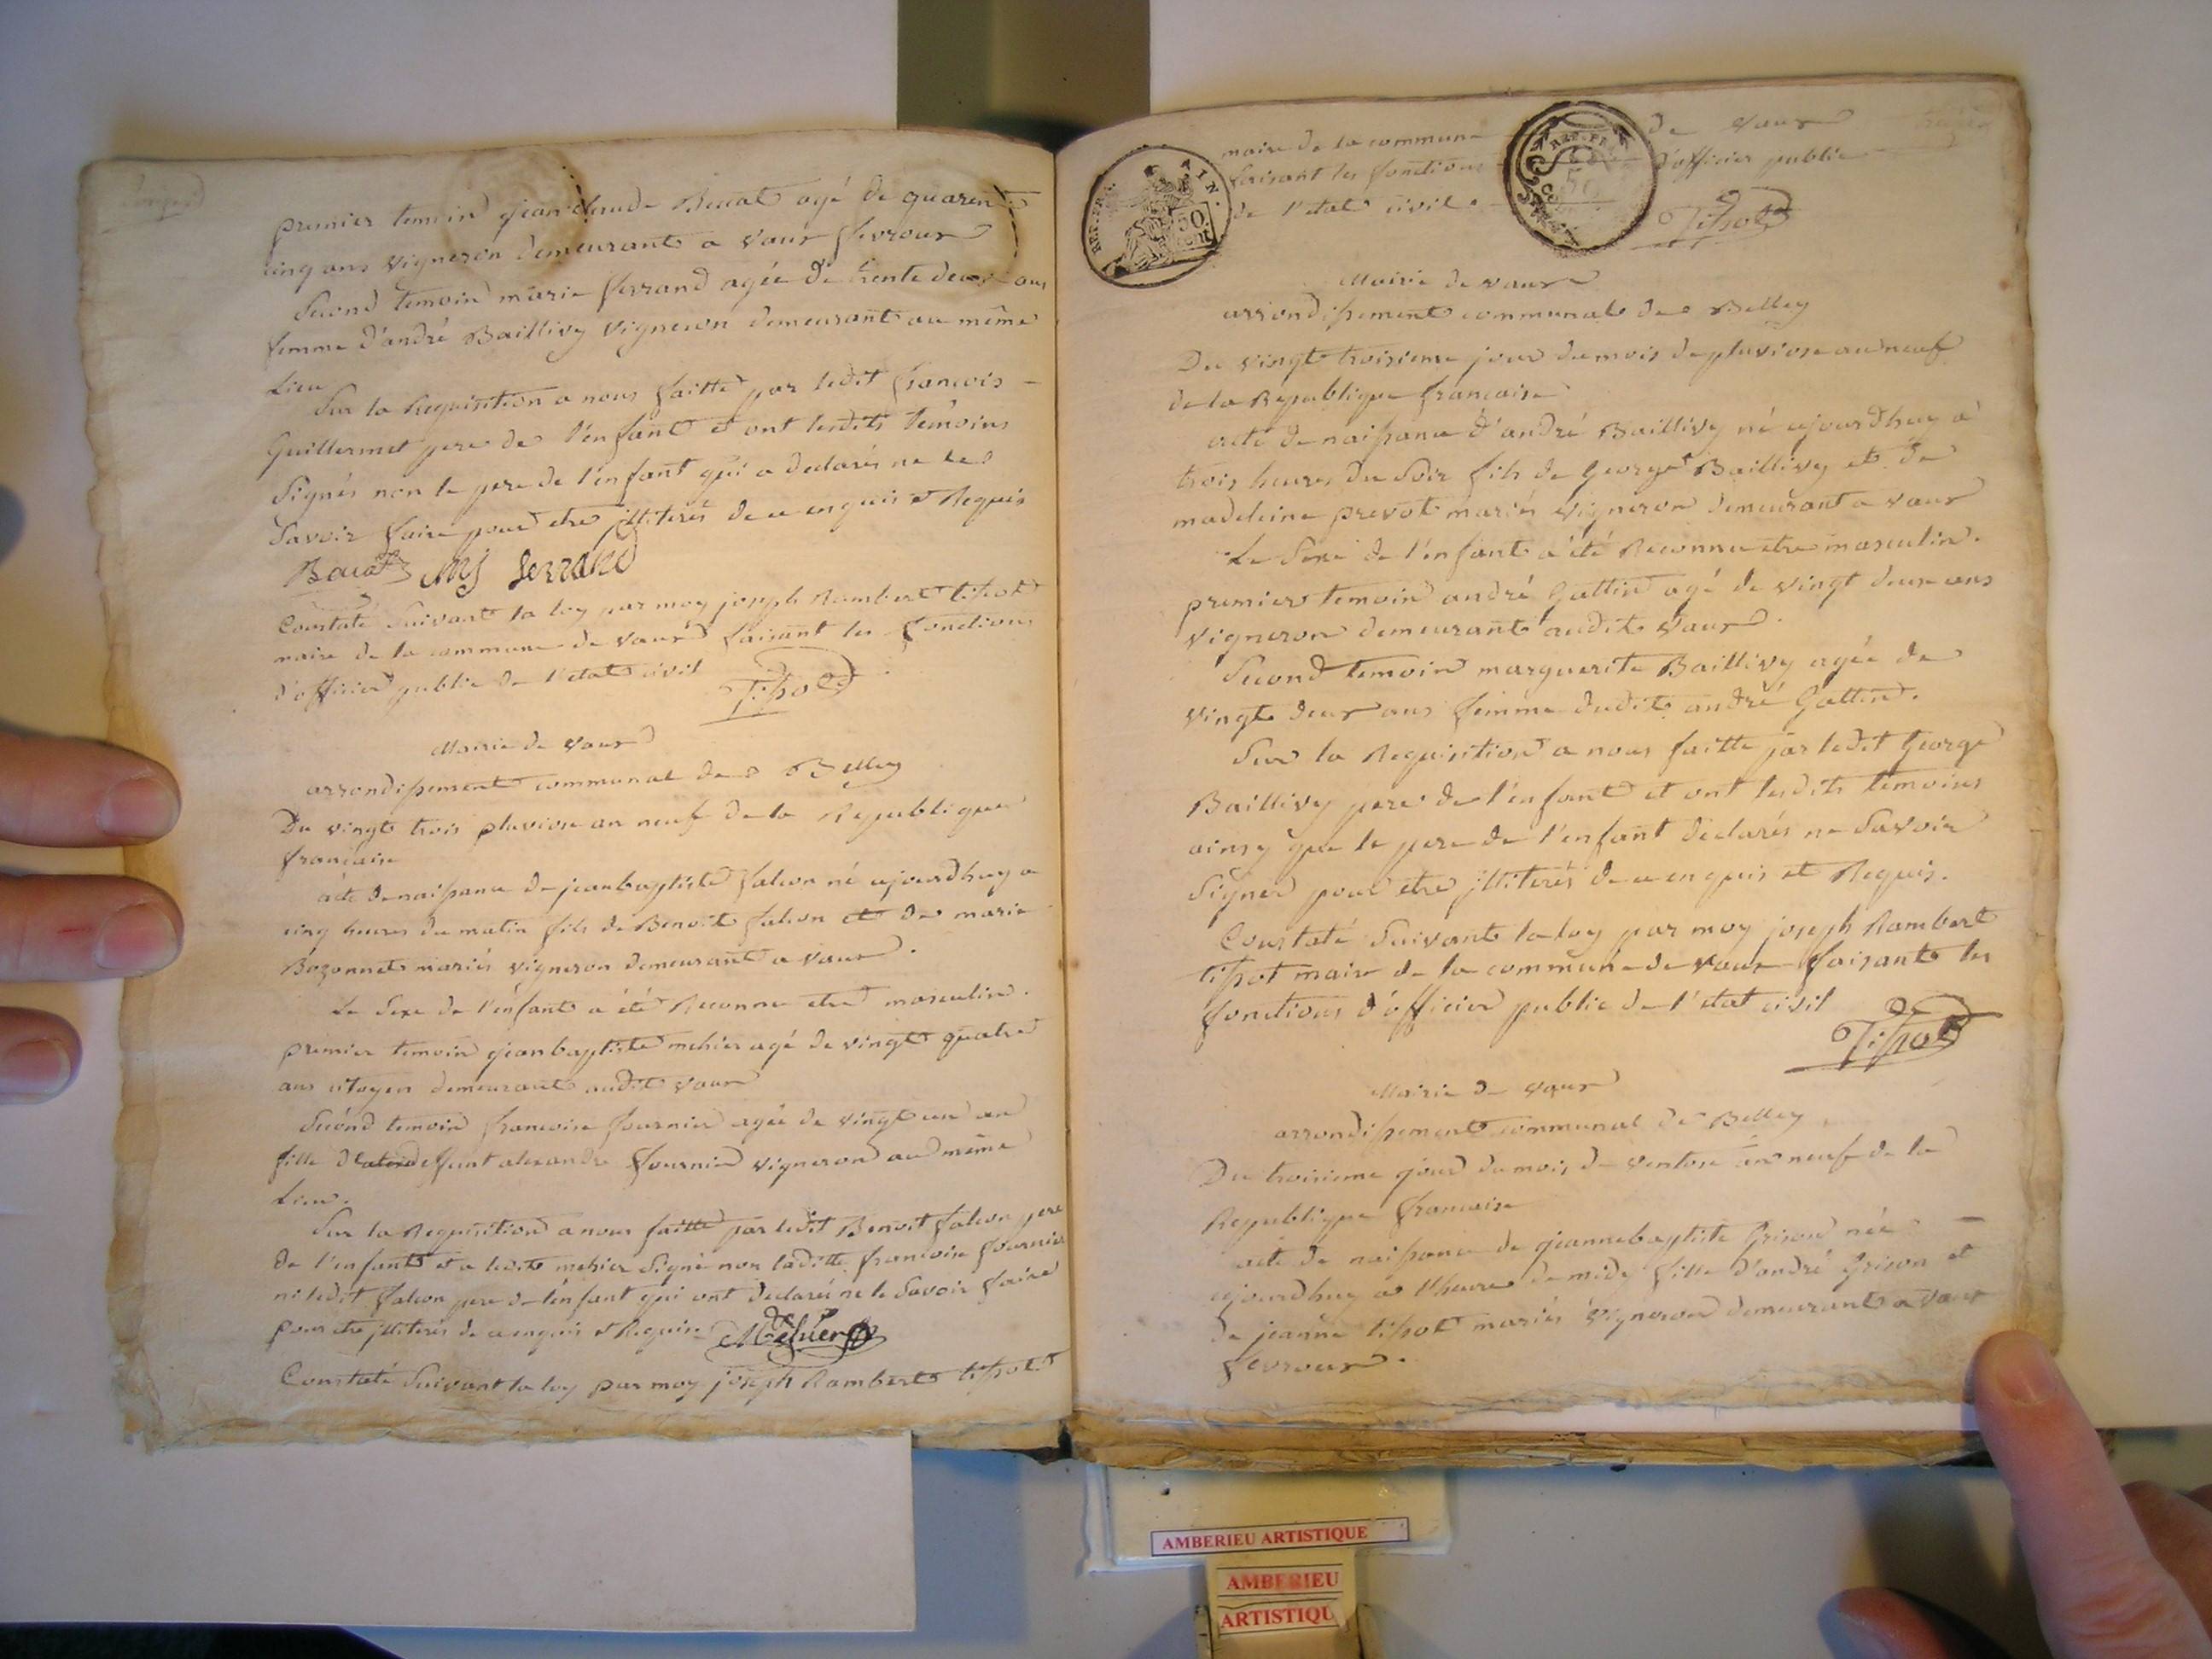 premier temoin jean claude Bacat agé de quarente
cinq ans vigneron demeurant a vaux fevroux
Second temoin marie ferrand agée de trente deux ans
femme d'andré Baillivy vigneron demeurant au même
lieu
Sur la Requisition a nous faitte par ledit francois
Guillermet pere de l'enfant et ont lesdits temoins
Signés non le pere de l'enfant qui a declarés ne le
Savoir faire pour etre illiterés de ce enquis et Requis
Bacat ferrand
Constaté Suivant la loy par moy joseph Rambert tissot
maire de la commune de vaux faisant les fonctions
d'officier public de l'etat civil
Tissot
Mairie de vaux
arrondissement communal de Belley
Du vingt trois pluviose an neuf de la Republique
francaise
acte de naissance de jeanbaptiste falcon né ajourdhuy a
cinq heures du matin fils de Benoit falcon et de marie
Bozonnet mariés vigneron demeurant a vaux.
Le Sexe de l'enfant a été Reconnu etre masculin.
premier temoin jeanbaptiste mehier agé de vingt quatre
ans citoyen demeurant audit vaux
Second temoin francoise fournier agée de vingt un an
fille defunt alexandre fournier vigneron au même
lieu.
Sur la Requisition a nous faitte par ledit Benoit falcon pere
de l'enfant et a ledit mehier Signé non laditte francoise fournier
ni ledit falcon pere de l'enfant qui ont declarés ne le Savoir faire
pour etre illiterés de ce enquis et Requis. Mehier
Constaté Suivant la loy par moy joseph Rambert tissot
maire de la commune de vaux
faisant les fonctions d'officier public
de l'etat civil.
Tissot
REP. FRA. AIN. 50. cent
REP. FRA. 50
Mairie de vaux
arrondissement communal de Belley
Du vingt troisieme jour du mois de pluviose an neuf
de la Republique francaise
acte de naissance d'andré Baillivy né ajourdhuy a
trois heures du Soir fils de George Baillivy et de
madeleine prevot mariés vigneron demeurant a vaux
Le Sexe de l'enfant a été Reconnu etre masculin.
premier temoin andré Gallin agé de vingt deux ans
vigneron demeurant audit vaux.
Second temoin marguerite Baillivy agée de
vingt deux ans femme dudit andré Gallin.
Sur la Requisition a nous faitte par ledit George
Baillivy pere de l'enfant et ont lesdits temoins
ainsy que le pere de l'enfant declarés ne Savoir
Signer pour etre illiterés de ce enquis et Requis.
Constaté Suivant la loy par moy joseph Rambert
tissot maire de la commune de vaux faisant les
fonctions d'officier public de l'etat civil
Tissot
Mairie de vaux
arrondissement communal de Belley
Du troisieme jour du mois de ventose an neuf de la
Republique francaise
acte de naissance de jeannebaptiste Grison née
ajourdhuy a l'heure de midy fille d'andré Grison et
de jeanne tissot mariés vigneron demeurant a vaux
fevroux.
AMBERIEU ARTISTIQUE
AMBERIEU
ARTISTIQU